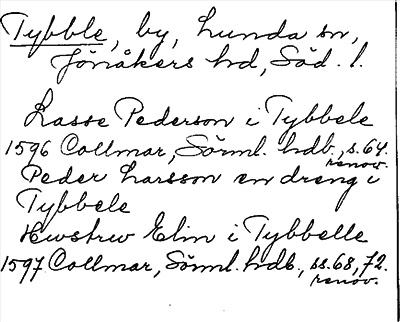 Tybble, by, Lunda sn,
Jönåkers hd, Söd. l.
Lasse Pederson i Tybbele
1596 Collmar, Sörml. hdb., s. 64.
renov.
Peder Larsson en dreng i
Tybbele
Hwstrw Elin i Tybbelle
1597 Collmar, Sörml. hdb., ss. 68, 72.
renov.